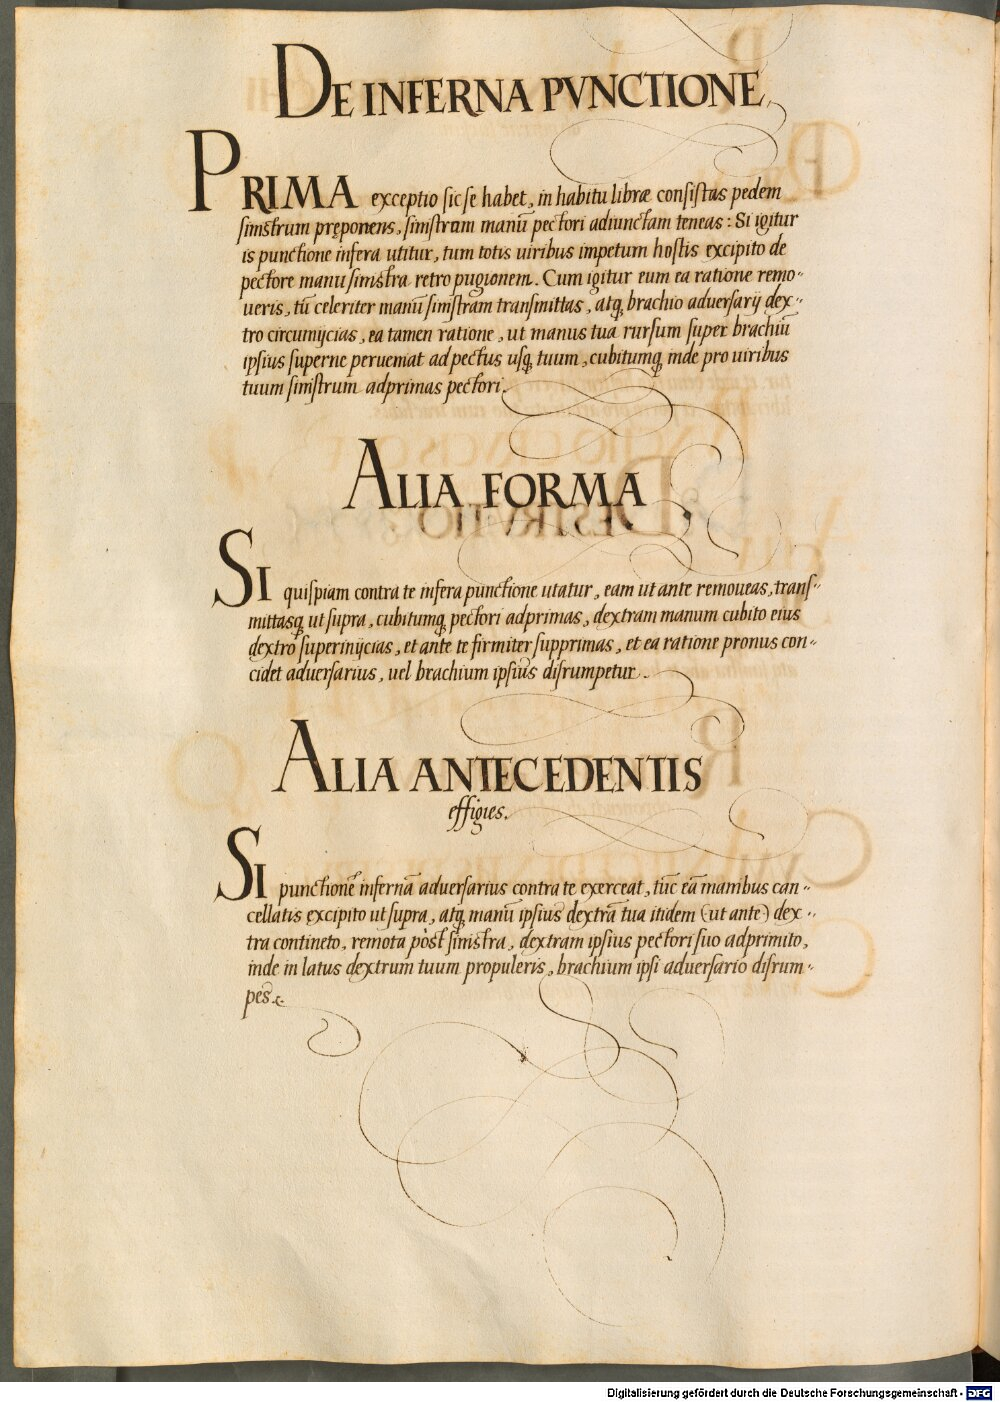 DE INFERNA PVNCTIONE
PRIMA exceptio sic se habet, in habitu libræ consistas pedem
sinistrum pręponens, sinistram manū pectori adiunctam teneas: Si igitur
is punctione infera utitur, tum totis uiribus impetum hostis excipito de
pectore manu sinistra retro pugionem. Cum igitur eum ea ratione remo-
ueris, tū celeriter manū sinistram transmittas, atq brachio aduersarij dex-
tro circumijcias, ea tamen ratione, ut manus tua rursum super brachiū
ipsius superne perueniat ad pectus usq tuum, cubitumq inde pro uiribus
tuum sinistrum adprimas pectori.
ALIA FORMA
SI quispiam contra te infera punctione utatur, eam ut ante remoueas, trans-
mittasq ut supra, cubitumq pectori adprimas, dextram manum cubito eius
dextro superinijcias, et ante te firmiter supprimas, et ea ratione pronus con-
cidet aduersarius, uel brachium ipsius disrumpetur.
ALIA ANTECEDENTIS
effigies.
SI punctionē infernā aduersarius contra te exerceat, tūc eā manibus can-
cellatis excipito ut supra, atq manū ipsius dextrā tua itidem (ut ante) dex-
tra contineto, remota pòst sinistra, dextram ipsius pectori suo adprimito,
inde in latus dextrum tuum propuleris, brachium ipsi aduersario disrum-
pes.
Digitalisierung gefördert durch die Deutsche Forschungsgemeinschaft - DFG